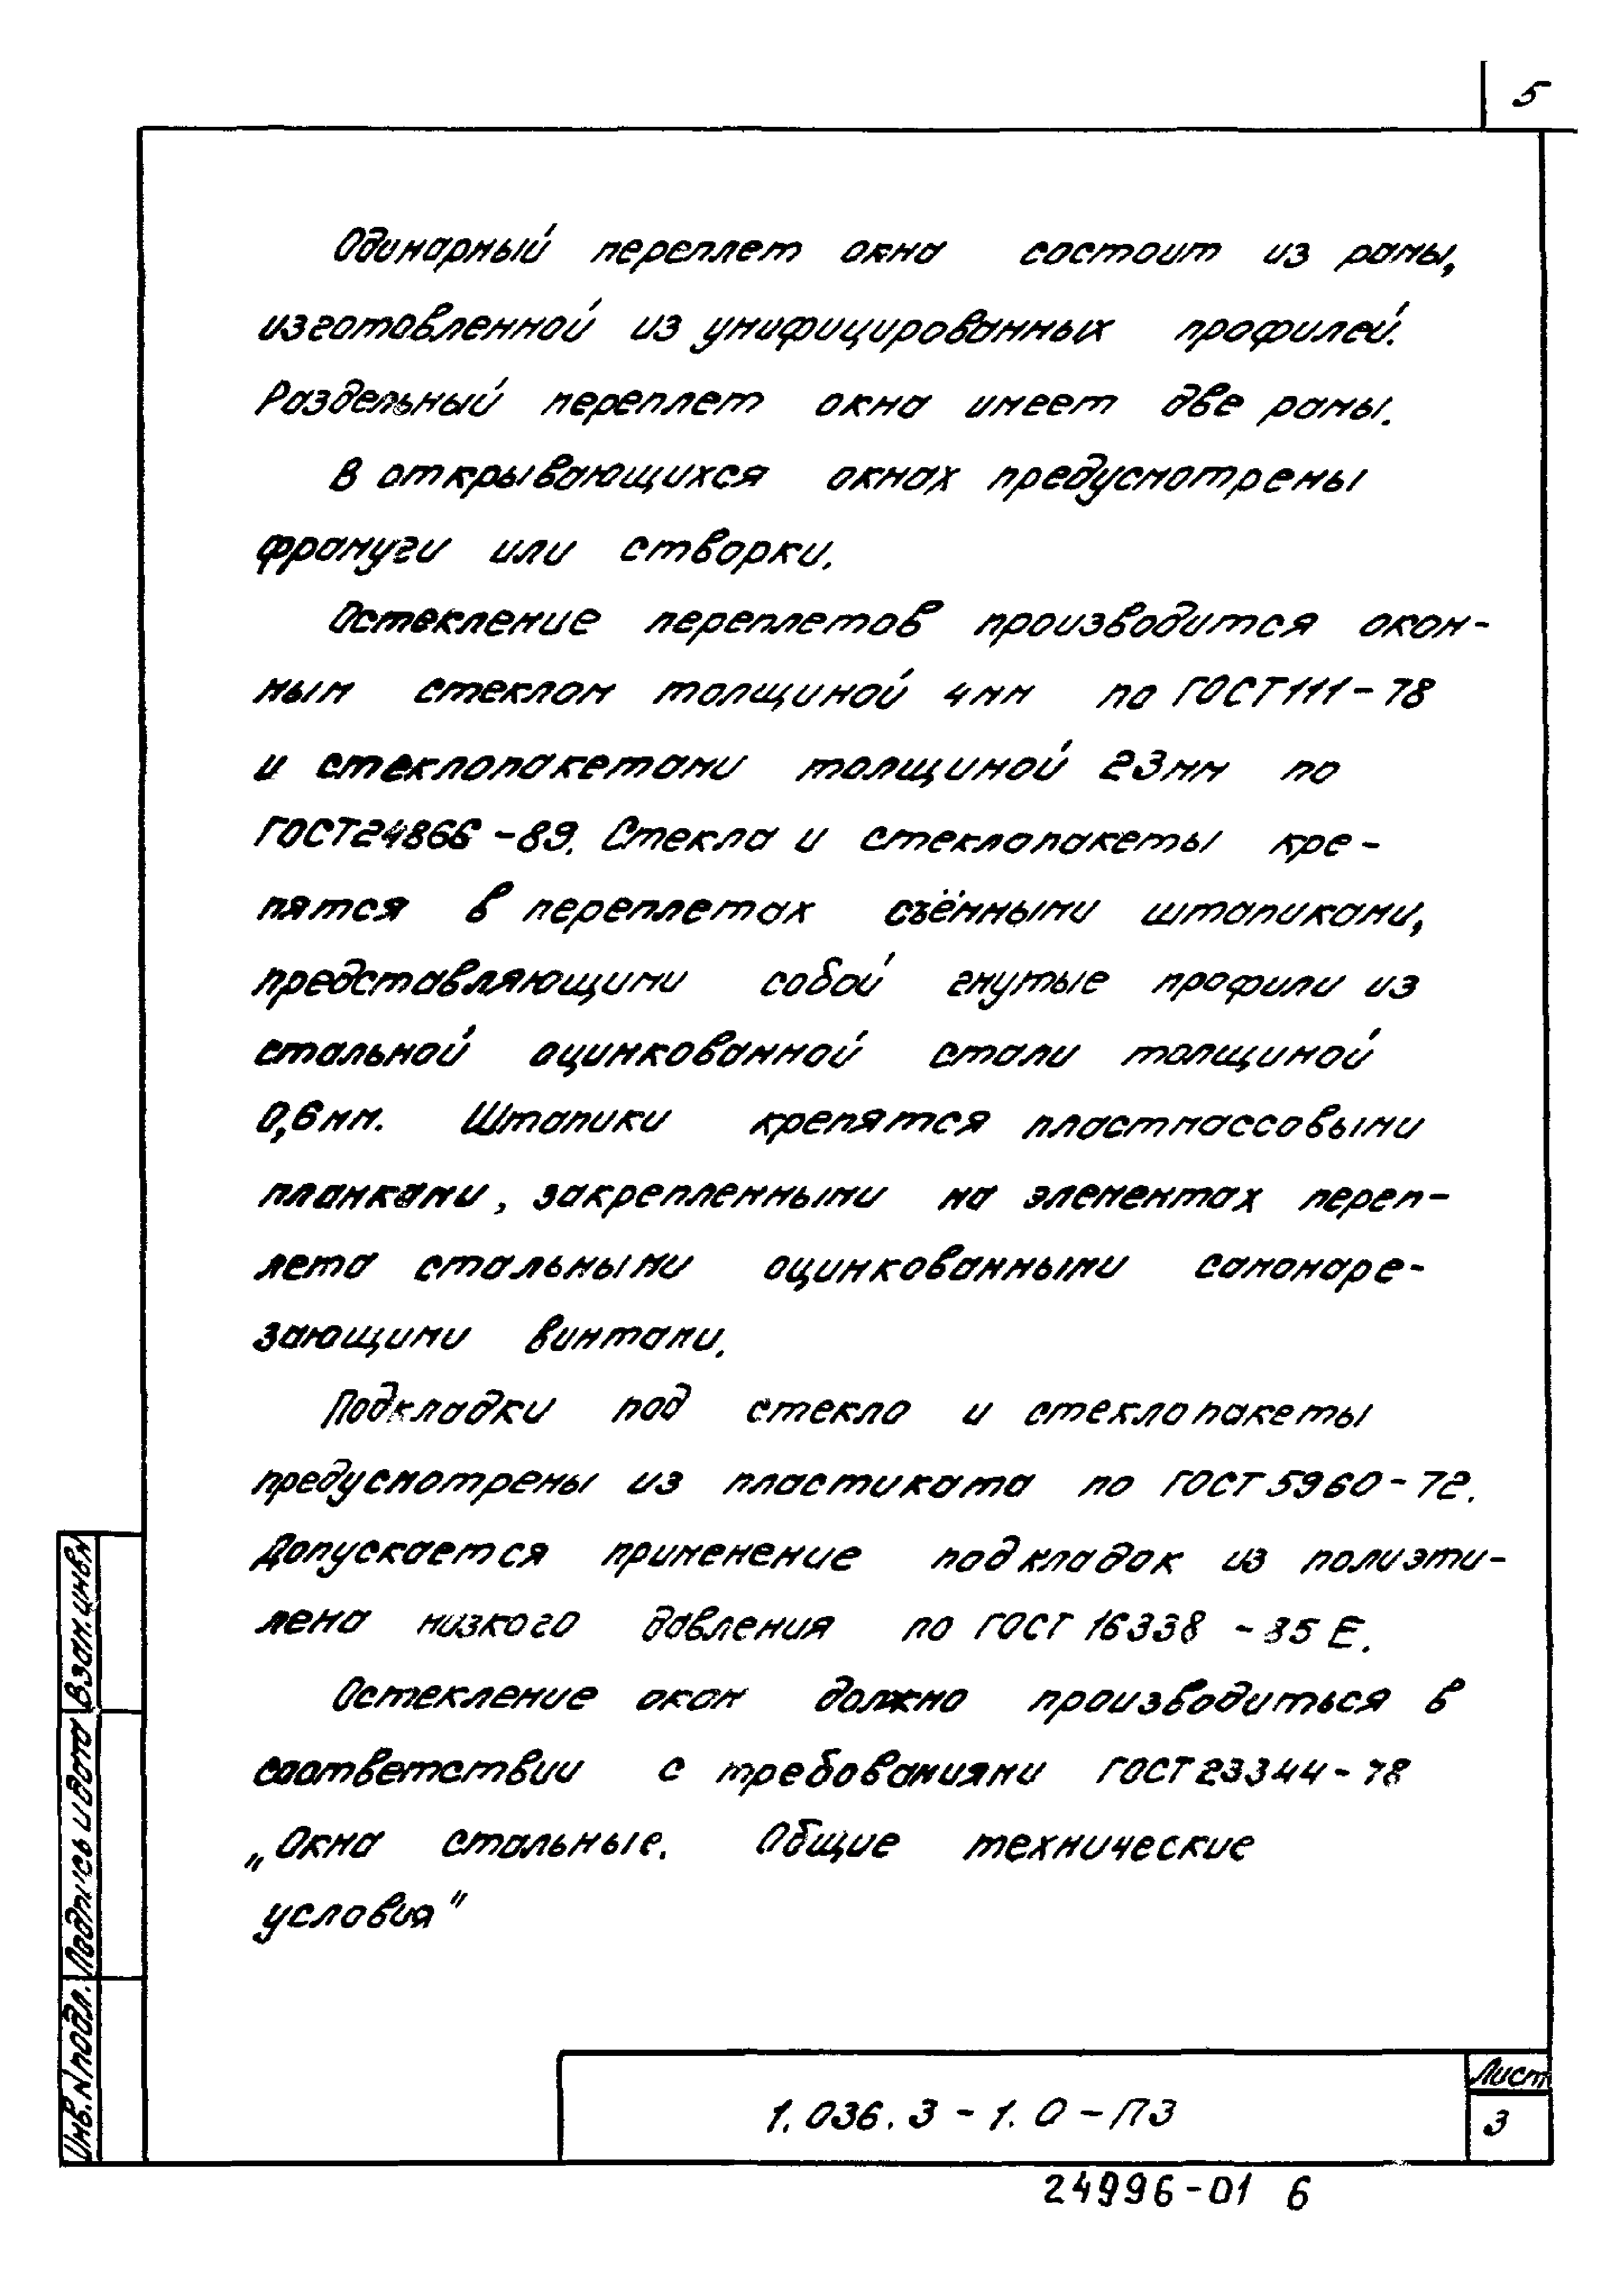 5
Одинарный переплет окна состоит из рамы,
изготовленной из унифицированных профилей.
Раздельный переплет окна имеет две рамы.
В открывающихся окнах предусмотрены
фрамуги или створки.
Остекление переплетов производится окон-
ным стеклом толщиной 4мм по ГОСТ 111-78
и стеклопакетами толщиной 23мм по
ГОСТ24866-89. Стекла и стеклопакеты кре-
пятся в переплетах съёмными штапиками,
представляющими собой гнутые профили из
стальной оцинкованной стали толщиной
0,6мм. Штапики крепятся пластмассовыми
планками, закрепленными на элементах переп-
лета стальными оцинкованными самонаре-
зающими винтами.
Подкладки под стекло и стеклопакеты
предусмотрены из пластиката по ГОСТ 5960-72.
Допускается применение подкладок из полиэти-
лена низкого давления по ГОСТ 16338-85Е.
Остекление окон должно производиться в
соответствии с требованиями ГОСТ 23344-78
„Окна стальные. Общие технические
условия"
Взам.инв.N
Подпись и дата
Инв.N подл.
1.036.3-1.0-ПЗ
Лист
3
24996-01 6